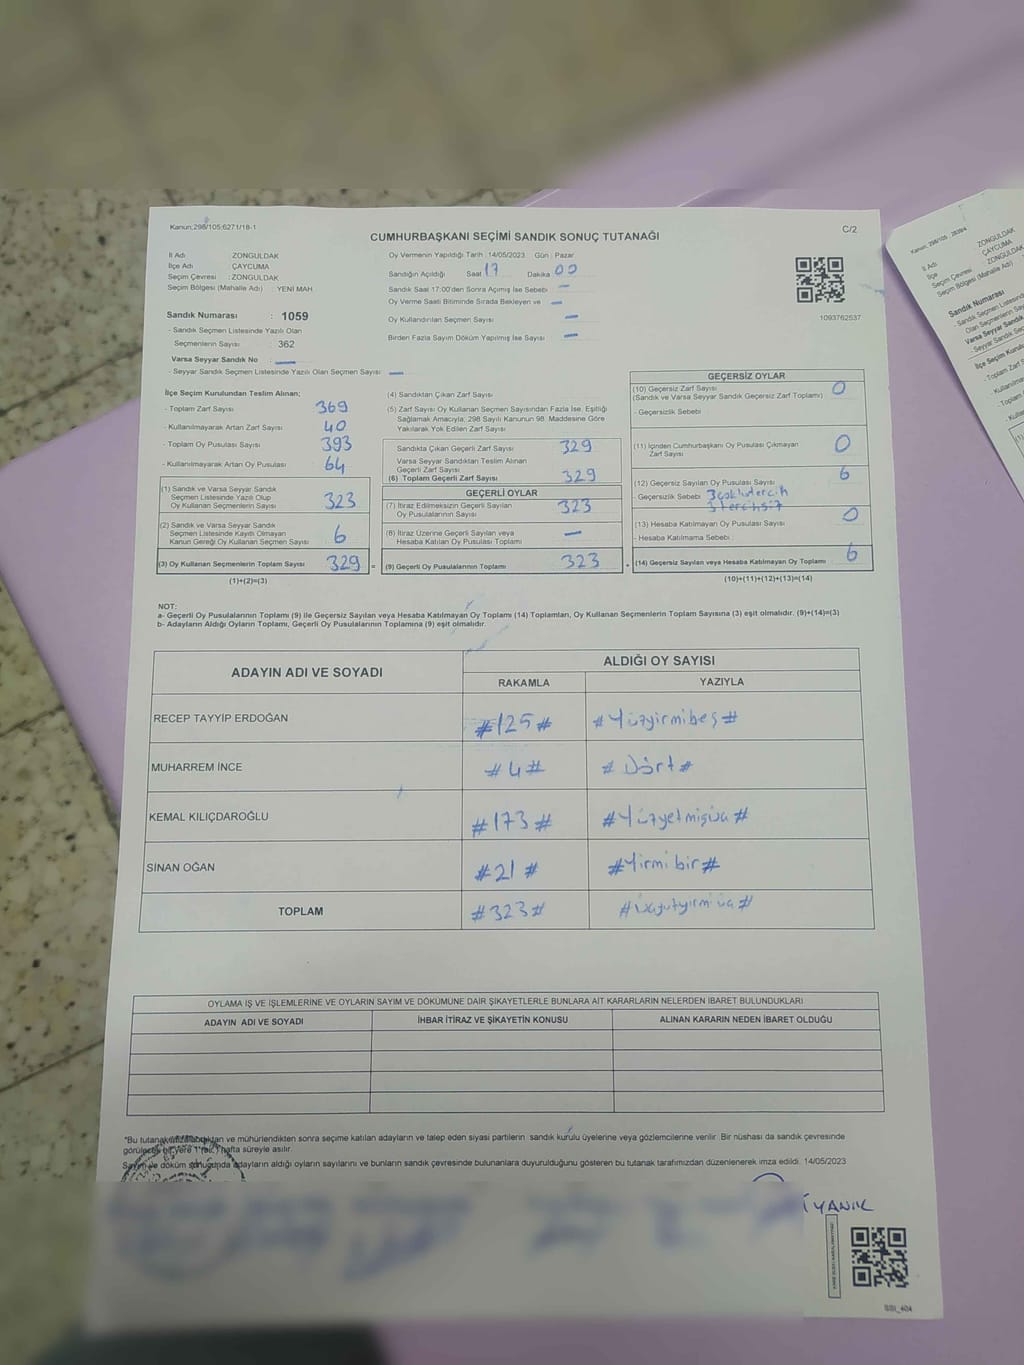 Kanun;298/105;6271/18-1
C/2
CUMHURBAŞKANI SEÇİMİ SANDIK SONUÇ TUTANAĞI
İl Adı ZONGULDAK
İlçe Adı ÇAYCUMA
Seçim Çevresi : ZONGULDAK
Seçim Bölgesi (Mahalle Adı) : YENİ MAH
Sandık Numarası : 1059
- Sandık Seçmen Listesinde Yazılı Olan
Seçmenlerin Sayısı : 362
Varsa Seyyar Sandık No : —
- Seyyar Sandık Seçmen Listesinde Yazılı Olan Seçmen Sayısı : —
Oy Vermenin Yapıldığı Tarih : 14/05/2023 Gün : Pazar
Sandığın Açıldığı Saat 17 Dakika 00
Sandık Saat 17:00'den Sonra Açımış İse Sebebi —
Oy Verme Saati Bitiminde Sırada Bekleyen ve —
Oy Kullandırılan Seçmen Sayısı —
Birden Fazla Sayım Döküm Yapılmış İse Sayısı —
1093762537
İlçe Seçim Kurulundan Teslim Alınan;
- Toplam Zarf Sayısı 369
- Kullanılmayarak Artan Zarf Sayısı 40
- Toplam Oy Pusulası Sayısı 393
- Kullanılmayarak Artan Oy Pusulası 64
(1) Sandık ve Varsa Seyyar Sandık
Seçmen Listesinde Yazılı Olup
Oy Kullanan Seçmenlerin Sayısı 323
(2) Sandık ve Varsa Seyyar Sandık
Seçmen Listesinde Kayıtlı Olmayan
Kanun Gereği Oy Kullanan Seçmen Sayısı 6
(3) Oy Kullanan Seçmenlerin Toplam Sayısı 329 =
(1)+(2)=(3)
(4) Sandıktan Çıkan Zarf Sayısı
(5) Zarf Sayısı Oy Kullanan Seçmen Sayısından Fazla İse, Eşitliği
Sağlamak Amacıyla; 298 Sayılı Kanunun 98. Maddesine Göre
Yakılarak Yok Edilen Zarf Sayısı
Sandıkta Çıkan Geçerli Zarf Sayısı 329
Varsa Seyyar Sandıktan Teslim Alınan
Geçerli Zarf Sayısı
(6) Toplam Geçerli Zarf Sayısı 329
GEÇERLİ OYLAR
(7) İtiraz Edilmeksizin Geçerli Sayılan
Oy Pusulalarının Sayısı 323
(8) İtiraz Üzerine Geçerli Sayılan veya
Hesaba Katılan Oy Pusulası Toplamı —
(9) Geçerli Oy Pusulalarının Toplamı 323 +
GEÇERSİZ OYLAR
(10) Geçersiz Zarf Sayısı 0
(Sandık ve Varsa Seyyar Sandık Geçersiz Zarf Toplamı)
- Geçersizlik Sebebi
(11) İçinden Cumhurbaşkanı Oy Pusulası Çıkmayan
Zarf Sayısı 0
(12) Geçersiz Sayılan Oy Pusulası Sayısı 6
- Geçersizlik Sebebi : 3 çoklu tercih
3 tercihsiz
(13) Hesaba Katılmayan Oy Pusulası Sayısı 0
- Hesaba Katılmama Sebebi :
(14) Geçersiz Sayılan veya Hesaba Katılmayan Oy Toplamı 6
(10)+(11)+(12)+(13)=(14)
NOT:
a- Geçerli Oy Pusulalarının Toplamı (9) ile Geçersiz Sayılan veya Hesaba Katılmayan Oy Toplamı (14) Toplamları, Oy Kullanan Seçmenlerin Toplam Sayısına (3) eşit olmalıdır. (9)+(14)=(3)
b- Adayların Aldığı Oyların Toplamı, Geçerli Oy Pusulalarının Toplamına (9) eşit olmalıdır.
ADAYIN ADI VE SOYADI ALDIĞI OY SAYISI
RAKAMLA YAZIYLA
RECEP TAYYİP ERDOĞAN #125# #Yüzyirmibeş#
MUHARREM İNCE #4# #Dört#
KEMAL KILIÇDAROĞLU #173# #Yüzyetmişüç#
SİNAN OĞAN #21# #Yirmi bir#
TOPLAM #323# #üçyüzyirmiüç#
OYLAMA İŞ VE İŞLEMLERİNE VE OYLARIN SAYIM VE DÖKÜMÜNE DAİR ŞİKAYETLERLE BUNLARA AİT KARARLARIN NELERDEN İBARET BULUNDUKLARI
ADAYIN ADI VE SOYADI İHBAR İTİRAZ VE ŞİKAYETİN KONUSU ALINAN KARARIN NEDEN İBARET OLDUĞU
*Bu tutanak ve mühürlendikten sonra seçime katılan adayların ve talep eden siyasi partilerin sandık kurulu üyelerine veya gözlemcilerine verilir. Bir nüshası da sandık çevresinde
hafta süreyle asılır.
döküm sonucunda adayların aldığı oyların sayılarını ve bunların sandık çevresinde bulunanlara duyurulduğunu gösteren bu tutanak tarafımızdan düzenlenerek imza edildi. 14/05/2023
SSI_404
Kanun; 298/105 - 2839/4
İl Adı ZONGULDAK
İlçe ÇAYCUMA
Seçim Çevresi ZONGULDAK
Seçim Bölgesi (Mahalle Adı)
Sandık Numarası